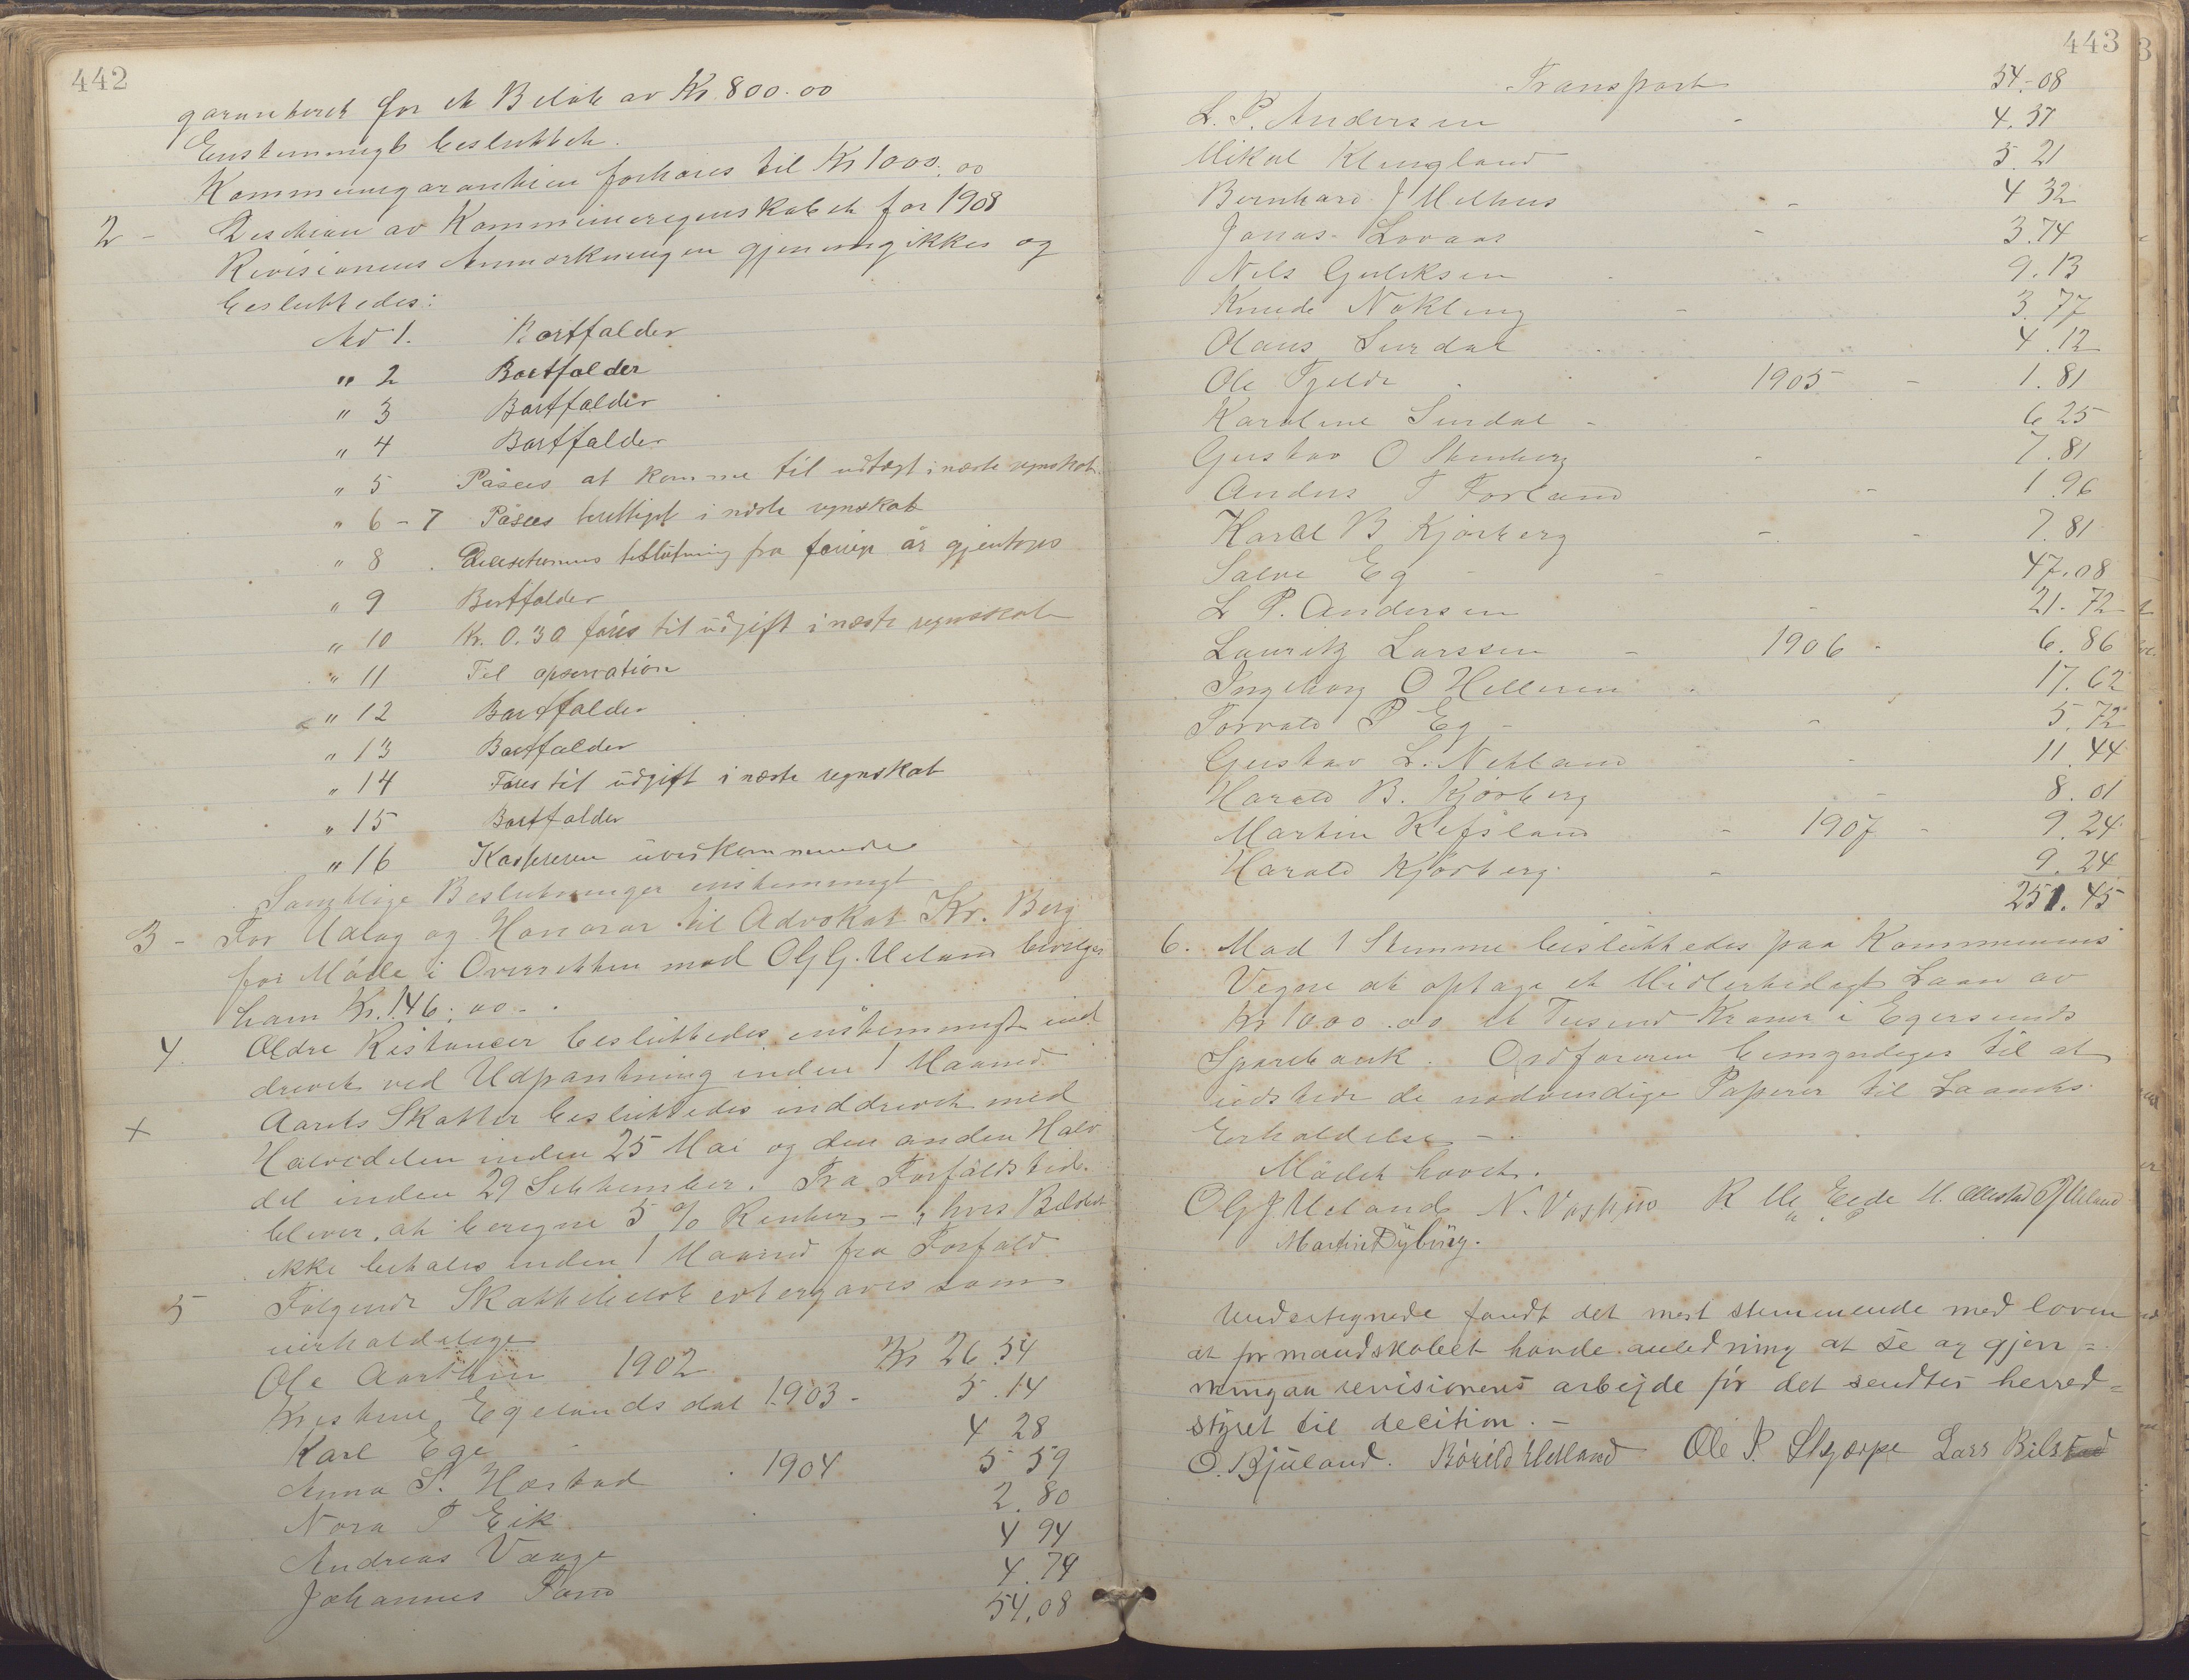 442
garanteret for et Beløb av Kr. 800.00
Enstemmigt besluttet.
Kommunegarantien forhøies til Kr 1000.00
2 - Decision av Kommuneregnskabet for 1908
Revisionens Anmærkninger gjennemgikkes og
besluttedes:
Ad 1. Bortfalder
" 2 Bortfalder
" 3 Bortfalder
" 4 Bortfalder
" 5 Påsees at komme til udtægt i næste regnskab.
" 6-7 Påsees berettiget i næste regnskab
" 8 . Decisionens beslutning fra forrige år gjentages
" 9 Bortfalder
" 10 Kr. 0.30 føres til udgift i næste regnskab
" 11 Til opservation
" 12 Bortfalder
" 13 Bortfalder
" 14 Føres til udgift i næste regnskab
" 15 Bortfalder
" 16 Kassereren uvedkommende
Samtlige Beslutninger enstemmigt
3 - For Udlæg og Honorar til Advokat Kr. Berg
for Møde i Overretten mod O G G. Ueland bevilges
ham Kr. 146.00 -
4. Ældre Restancer besluttedes enstemmigt ind
drevet ved Udpantning inden 1 Maaned.
+ Aarets Skatter besluttedes inddrevet med
Halvedelen inden 25 Mai og den anden Halv
del inden 29 Setember. Fra Forfaldstid.
bliver at beregne 5 % Renter - , hvis Beløbet
ikke betales inden 1 Maaned fra Forfald
5 Følgende Skattebeløb evtergaves som
uerholdelige
Ole Aarthun 1902 Kr 26.54
Kristine Egelandsdal 1903 - 5.14
Karl Ege 4 28
Anna S. Hæstad . 1904 5 59
Nora T Eik 2.80
Andreas Vaage 4 94
Johannes Tand 4.79
54.08
443
Transport 54.08
L. P. Andersen - 4.37
Mikal Klungland 5.21
Bernhard J Melhus - 4 32
Jonas Lovaas - 3.74
Nils Gulliksen 9.13
Knude Nøkling - 3.77
Olaus Surdal 4.12
Ole Tjelde 1905 - 1.81
Karoline Surdal - 6 25
Gustav O Stenberg - 7.81
Anders T Forland - 1 96
Harald B Kjørberg - - 7.81
Salve Eg - - 47.08
L P. Andersen - 21.72
Lauritz Larssen - 1906 - 6.86
Ingeborg O Helleren 17.62
Torvald P Eg - - 5.72
Gustav L. Netland - 11.44
Harald B. Kjørberg - 8.01
Martin Refsland - 1907 - 9.24
Harald Kjørberg. - 9.24
251.45
6. Mod 1 Stemme besluttedes paa Kommunens
Vegne at optage et Midlertidigt Laan av
Kr 1000.00 et Tusend Kroner i Egersunds
Sparebank. Ordføreren bemyndiges til at
udstede de nødvendige Papirer til Laanets
Erholdelse -.
Mødet hævet.
O G J Ueland N. Vaskuo R Ole Eede M. Ollestad O J Ueland
Martin Dybing.
Undertegnede fandt det mest stemmende med loven
at formandskabet havde anledning at se og gjen=
nemgaa revisionens arbejde før det sendtes herred=
styret til decition. -
O. Bjuland. Bårild Hetland Ole P. Skjerpe Lars Bilstad